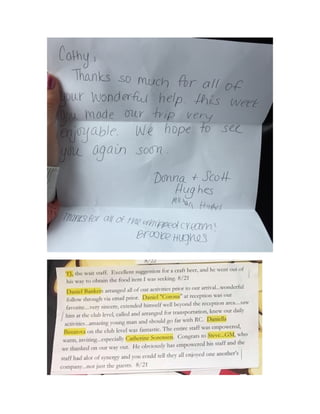 Cathy,
Thanks so much for all of
your wonderful help this week
you made our trip very
enjoyable. We hope to see
you again soon.
Donna + Scott
Hughes
Hughes
Thanks for all of the whipped cream!
Brooke Hughes
8/21
the wait staff. Excellent suggestion for a craft beer, and he went out of
his way to obtain the food item I was seeking 8/21
Daniel Bankers arranged all of our activities prior to our arrival...wonderful
follow through via email prior. Daniel "Corona" at reception was our
favorite....very sincere, extended himself well beyond the reception area...saw
him at the club level, called and arranged for transportation, knew our daily
activities...amazing young man and should go far with RC. Daniella
on the club level was fantastic. The entire staff was empowered,
warm, inviting...especially Catherine Sorensen. Congrats to Steve...GM, who
we thanked on our way out. He obviously has empowered his staff and the
staff had alot of synergy and you could tell they all enjoyed one another's
company...not just the guests. 8/21